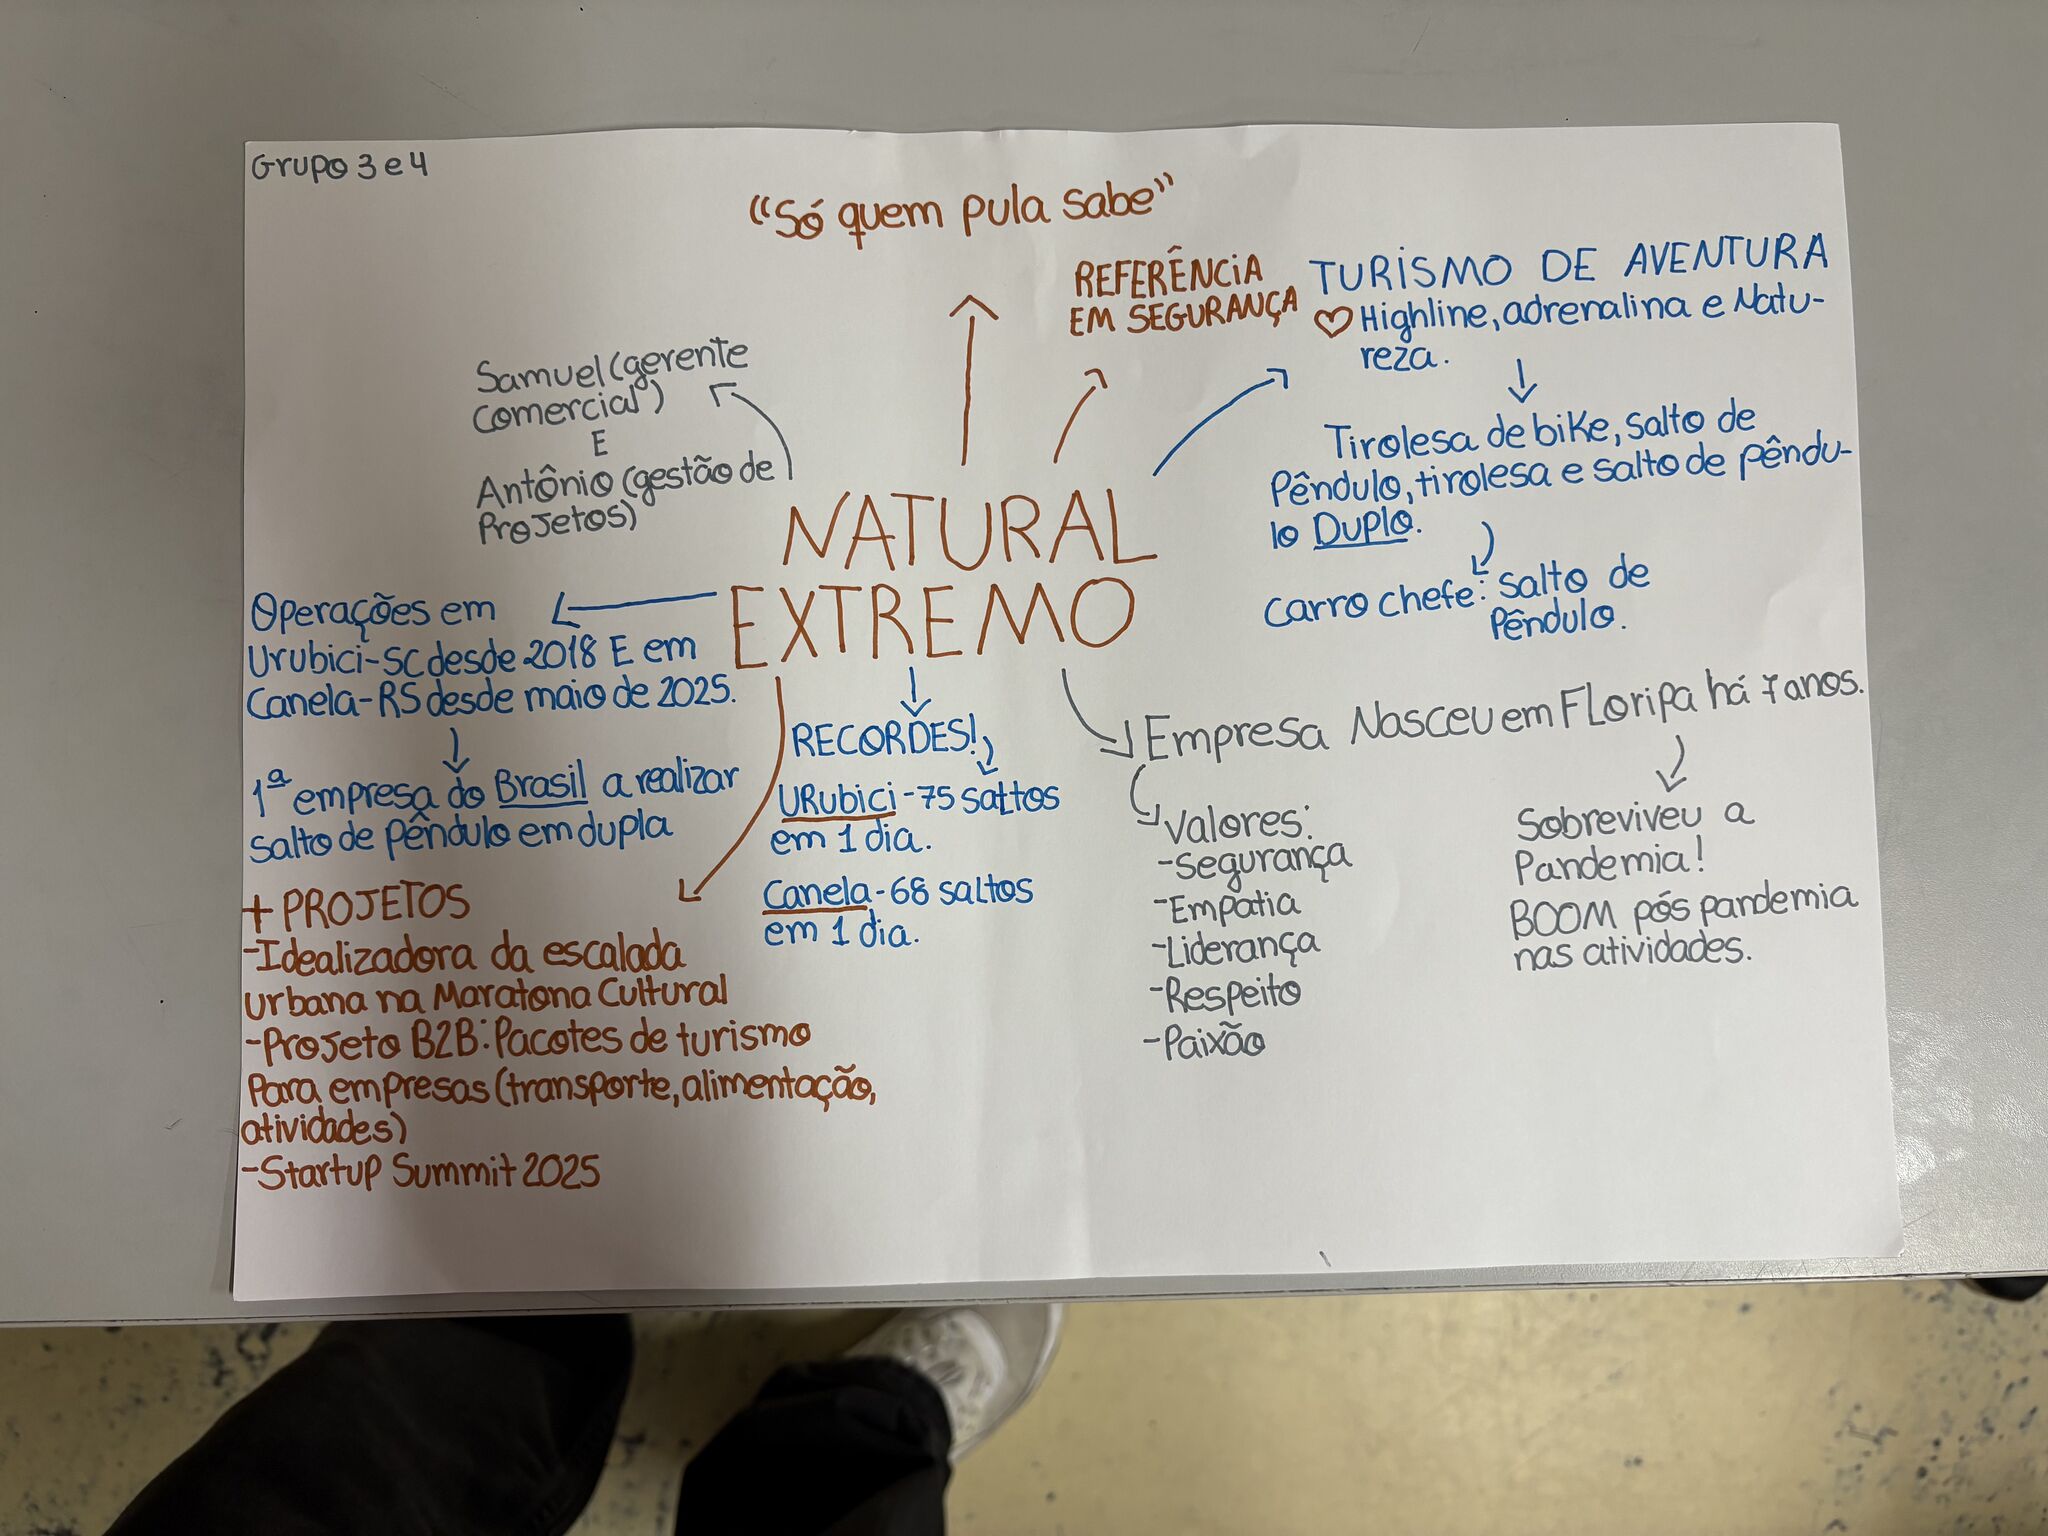 Grupo 3 e 4
“Só quem pula sabe”
REFERÊNCIA
EM SEGURANÇA
TURISMO DE AVENTURA
Highline, adrenalina e Natu-
reza.
Tirolesa de bike, salto de
Pêndulo, tirolesa e salto de pêndu-
lo Duplo.
Carro chefe: Salto de
Pêndulo.
Samuel (gerente
comercial)
E
Antônio (gestão de
Projetos)
NATURAL
EXTREMO
Operações em
Urubici-SC desde 2018 E em
Canela-RS desde maio de 2025.
1ª empresa do Brasil a realizar
salto de pêndulo em dupla
RECORDES!
URubici - 75 saltos
em 1 dia.
Canela - 68 saltos
em 1 dia.
Empresa Nasceu em Floripa há 7 anos.
Valores:
- Segurança
- Empatia
- Liderança
- Respeito
- Paixão
Sobreviveu a
Pandemia!
BOOM pós pandemia
nas atividades.
+ PROJETOS
- Idealizadora da escalada
urbana na Maratona Cultural
- Projeto B2B: Pacotes de turismo
Para empresas (transporte, alimentação,
atividades)
- Startup Summit 2025